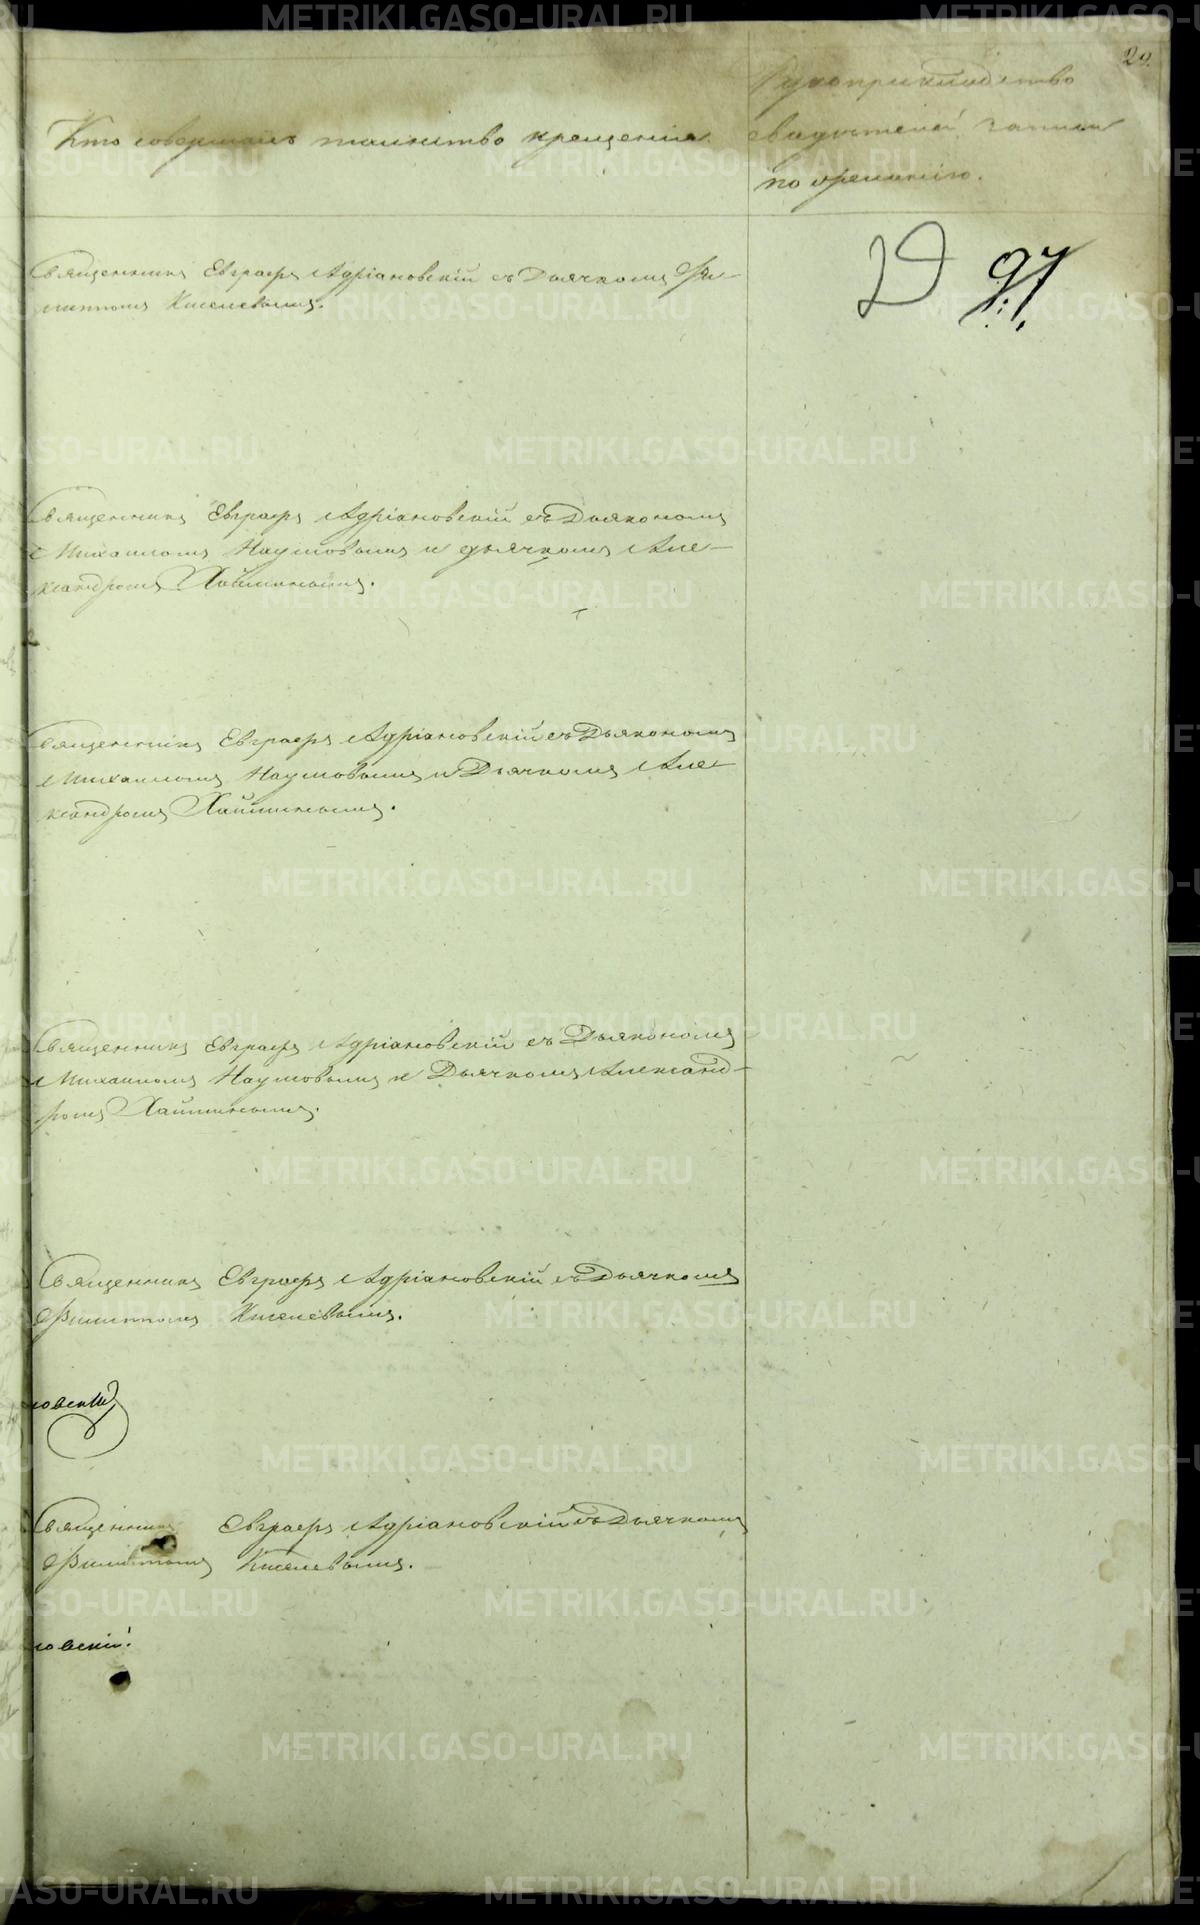 20.
Кто совершалъ таинство крещенія.
Рукоприкладство
свидѣтелей записи
по желанію.
29 97
Священникъ Евграфъ Адріановскій съ Дьячкомъ Фи-
липпомъ Киселевымъ.
Священникъ Евграфъ Адріановскій съ Дьякономъ
Михаиломъ Наумовымъ и дьячкомъ Але-
ксандромъ Хайминымъ.
Священникъ Евграфъ Адріановскій съ Дьякономъ
Михаиломъ Наумовымъ и Дьячкомъ Але-
ксандромъ Хайминымъ.
Священникъ Евграфъ Адріановскій съ Дьякономъ
Михаиломъ Наумовымъ и Дьячкомъ Александ-
ромъ Хайминымъ.
Священникъ Евграфъ Адріановскій съ Дьячкомъ
Филиппомъ Киселевымъ.
новскій
Священникъ Евграфъ Адріановскій съ Дьячкомъ
Филиппомъ Киселевымъ.
новскій.
METRIKI.GASO-URAL.RU